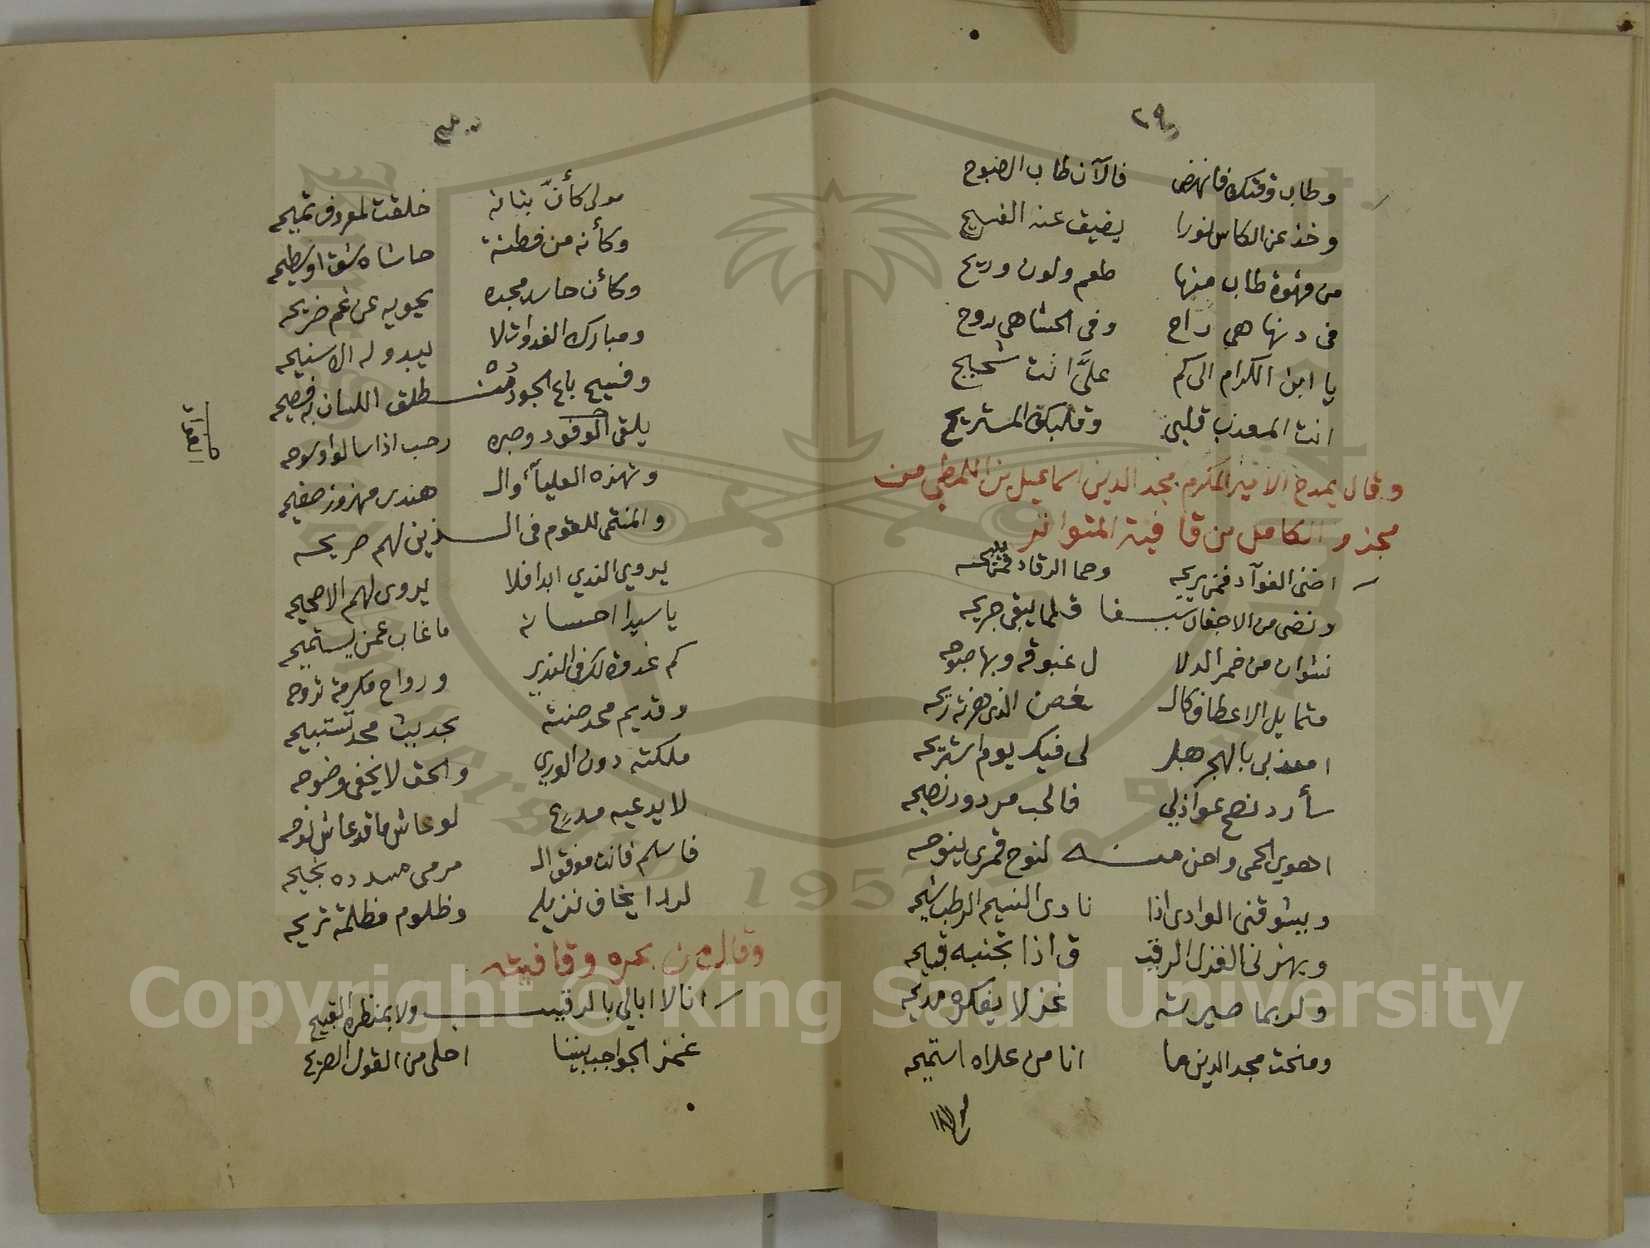 ٢٩
وطاب وقتك فانهض فالآن طاب الصبوح
وخذ عن الكاس نورا يضيق عنه الفسيح
من قهوة طاب منها طعم ولون وريح
فى دنها هى راح وفى الحشا هى روح
يا ابن الكرام الى كم علىَّ انت شحيح
انت المعذب قلبى وقلبك المستريح
وقال يمدح الامير المكرم مجد الدين اسماعيل بن اللمطي من
مجزو الكامل من قافية المتواتر
اضنى الفوآد فمن يريحه وحما الرقاد فمن يبيحه
ونضى من الاجفان سيفا قلما يبقى جريحه
نشوان من خمر الدلا ل غبوقه وبها صبوحه
متمايل الاعطاف كالـ غصن الذى هزته ريحه
امعذبى بالهجر هل لى فيك يوم استريحه
سأرد نصح عواذلي فالحب مردود نصيحه
اهوى الحمى واحن منه لنوح قمرى ينوحه
ويشوقنى الوادى اذا نادى النسيم الرطب شيحه
ويهزنى الغزل الرقيـ ق اذا تجنبه قبيحه
ولربما صيرته غزلا يفكره مديحه
ومنحت مجد الدين ما انا من علاه استميحه
مولى كأنَّ بنانه خلقت لمعروف تميحه
وكأنه من فطنة حاشاه شق او سطيحه
وكأن حاسد مجده يحويه من غم ضريحه
ومبارك الغدوات لا يبدو له الا سنيحه
وفسيح باع الجود منطلق اللسان به فصيحه
يلقى الوفود وصدره رحب اذا سالوا وسوحه
وتهزه العلياء والـ هندى مهزوز صفيحه
والمنتمى للقوم فى الـ ذين لهم صريحه
يروى الندي ابدا فلا يروى لهم الا صحيحه
يا سيدا احسانه ما غاب عمن يستميحه
كم غدوة لك فى الندي ورواح مكرمة تروحه
وقديم مجد صنته بجديث مجد تستبيحه
ملكته دون الوري والحق لا يخفى وضوحه
لا يدعيه مدعٍ لو عاش ما قد عاش نوحه
فاسلم فانت موفق الـ مرمى مسدده نجيحه
لردا يخاف نزيله وظلوم مظلمة تريحه
وقال من بحره وقافيته
انا لا ابالي بالرقيب ولا بمنظره القبيح
غمز الحواجب بيننا احلى من القول الصريح